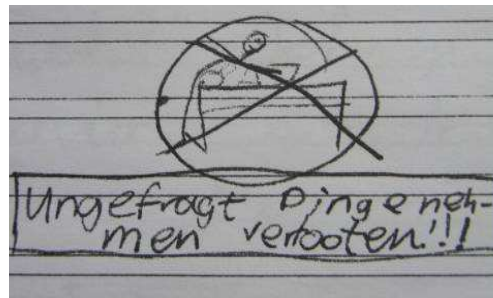 Ungefragt Dinge neh-
men verboten!!!